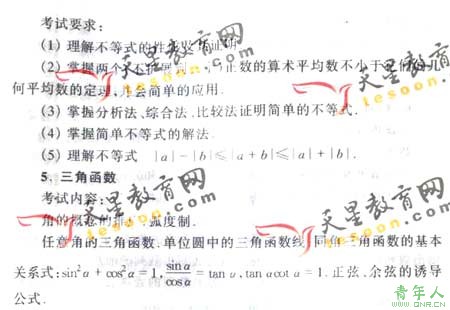 考试要求：
(1) 理解不等式的性质及其证明
(2) 掌握两个 数的算术平均数不小于 几
何平均数的定理,并会简单的应用.
(3) 掌握分析法、综合法、比较法证明简单的不等式.
(4) 掌握简单不等式的解法.
(5) 理解不等式 |a|-|b|≤|a+b|≤|a|+|b|.
5. 三角函数
考试内容：
角的概念的推广. 弧度制.
任意角的三角函数. 单位圆中的三角函数线. 同角三角函数的基本
关系式:sin²α+cos²α=1, sinα/cosα=tanα, tanαcotα=1. 正弦、余弦的诱导
公式.
天星教育网
tesoon.com
天星教育网
tesoon.com
天星教育网
tesoon.com
天星教育网
tesoon.com
青年人
WWW.QNR.CN